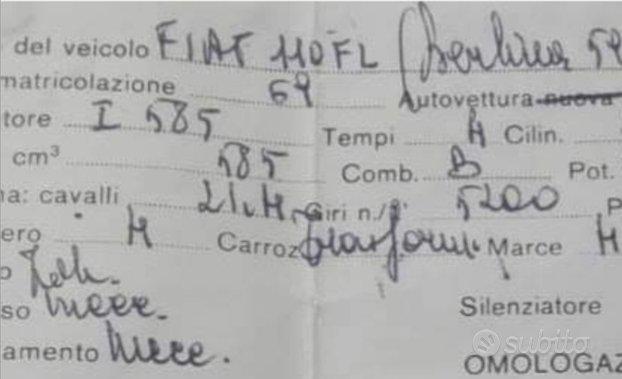 del veicolo FIAT 110 FL Berlina 5
matricolazione 69 Autovettura nuova
tore I 585 Tempi 4 Cilin.
cm³ 585 Comb. B Pot.
na: cavalli 21,4 Giri n./ 5200 P
ero 4 Carroz Marce 4
o
so Mecc.
amento Mecc. Silenziatore
subito
OMOLOGAZ